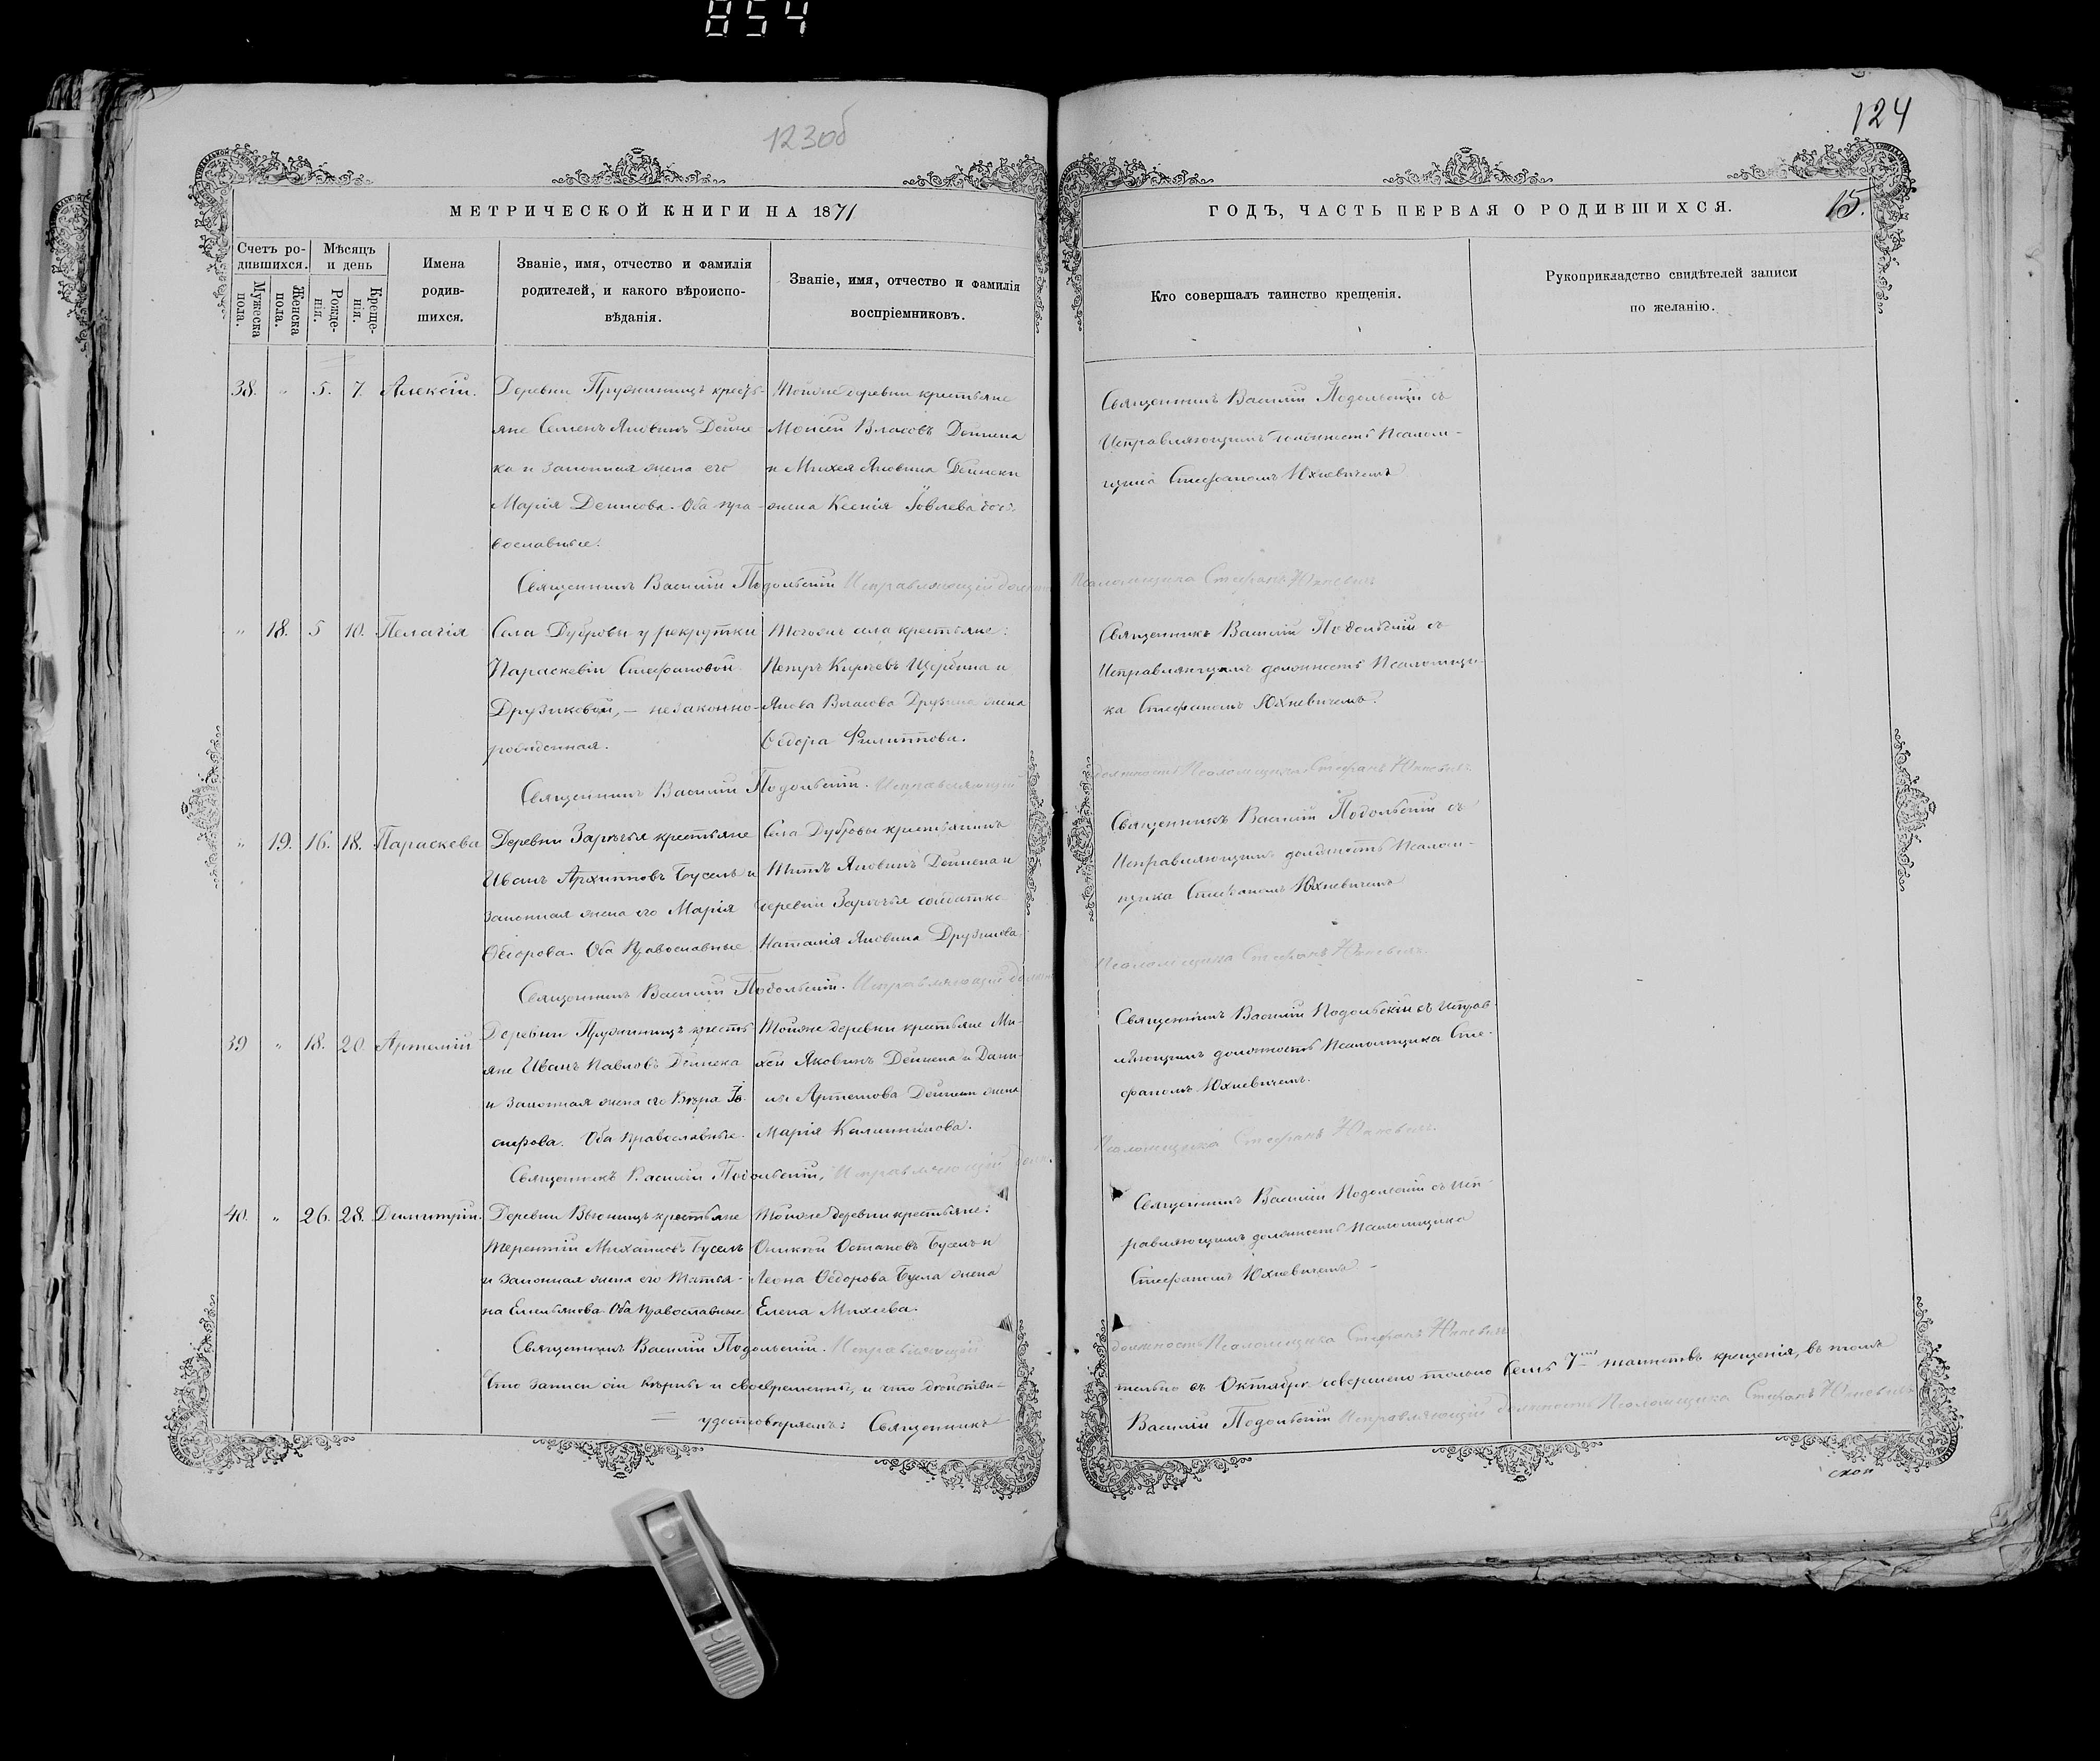 854
123об
124
МЕТРИЧЕСКОЙ КНИГИ НА 1871
ГОДЪ, ЧАСТЬ ПЕРВАЯ О РОДИВШИХСЯ.
15.
Счетъ ро-
дившихся.
Мужеска
пола.
Женска
пола.
Мѣсяцъ
и день
Рожде-
нія.
Креще-
нія.
Имена
родив-
шихся.
Званіе, имя, отчество и фамилія
родителей, и какого вѣроиспо-
вѣданія.
Званіе, имя, отчество и фамилія
воспріемниковъ.
Кто совершалъ таинство крещенія.
Рукоприкладство свидѣтелей записи
по желанію.
38. " 5. 7. Алексій.
Деревни Пружиницъ кресть-
яне Семенъ Яковинъ Дейне-
ка и законная жена его
Марія Денисова. Оба пра-
вославные.
Тойже деревни крестьяне
Моисей Власовъ Дейнека
и Михея Яковина Дейнеки
жена Ксенія
Священникъ Василій Подольскій съ
Исправляющимъ должность Псалом-
щика Стефаномъ Юхневичемъ
Священникъ Василій Подольскій Исправляющій
Псаломщика Стефанъ Юхневичъ
" 18. 5 10. Пелагія
Села Дубровы у рекрутки
Параскевіи Стефановой
Друзиковой, — незаконно-
рожденная.
Тогоже села крестьяне:
Петръ Кирѣевъ Щербина и
Якова Власова Друзика жена
Ѳедора Филиппова.
Священникъ Василій Подольскій съ
Исправляющимъ должность Псаломщи-
ка Стефаномъ Юхневичемъ.
Священникъ Василій Подольскій. Исправляющій
должность Псаломщика Стефанъ Юхневичъ
" 19. 16. 18. Параскева
Деревни Зарѣчья крестьяне
Иванъ Архиповъ Буселъ и
законная жена его Марія
Ѳедорова. Оба Православные
Села Дубровы крестьянинъ
Титъ Яковинъ Дейнека и
деревни Зарѣчья солдатка
Наталія Яковина Друзикова.
Священникъ Василій Подольскій съ
Исправляющимъ должность Псалом-
щика Стефаномъ Юхневичемъ
Священникъ Василій Подольскій. Исправляющій
Псаломщика Стефанъ Юхневичъ.
39 " 18. 20. Артемій
Деревни Пружиницъ кресть
яне Иванъ Павловъ Дейнека
и законная жена его Вѣра Іо-
сифова. Оба Православные.
Тойже деревни крестьяне Ми-
хей Яковинъ Дейнека и Дани-
лы Артемова Дейнеки жена
Марія Калинникова.
Священникъ Василій Подольскій съ Исправ-
ляющимъ должность Псаломщика Сте-
фаномъ Юхневичемъ.
Священникъ Василій Подольскій, Исправляющій
Псаломщика Стефанъ Юхневичъ.
40. " 26. 28. Димитрій.
Деревни Вьюницъ крестьяне
Терентій Михаиловъ Бусель
и законная жена его Татья-
на Емельянова. Оба Православные
Тойже деревни крестьяне:
Остаповъ Буселъ и
Леона Ѳедорова Бусла жена
Елена Михеева.
Священникъ Василій Подольскій съ Исп-
равляющимъ должность Псаломщика
Стефаномъ Юхневичемъ
Священникъ Василій Подольскій. Исправляющій
должность Псаломщика Стефанъ Юхневичъ
Что записи сіи вѣрны и своевременны, и что дѣйстви-
тельно въ Октябрѣ совершено только семь 7 таинствъ крещенія, въ томъ
удостовѣряемъ: Священникъ
Василій Подольскій Исправляющій должность Псаломщика Стефанъ Юхневичъ